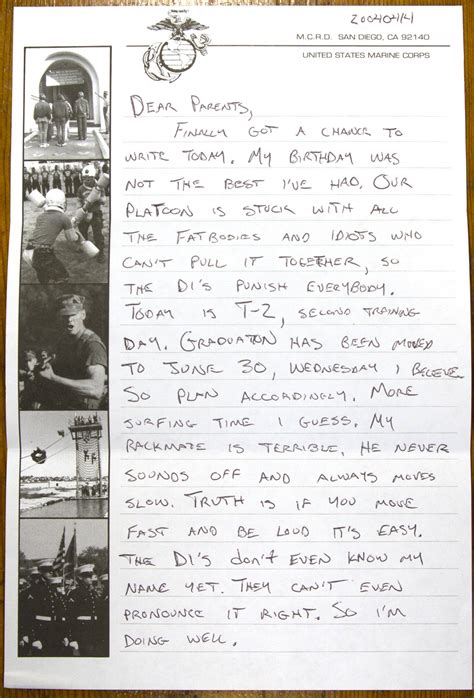 20040414
M.C.R.D. SAN DIEGO, CA 92140
UNITED STATES MARINE CORPS
DEAR PARENTS,
FINALLY GOT A CHANCE TO
WRITE TODAY. MY BIRTHDAY WAS
NOT THE BEST I'VE HAD. OUR
PLATOON IS STUCK WITH ALL
THE FATBODIES AND IDIOTS WHO
CAN'T PULL IT TOGETHER, SO
THE DI'S PUNISH EVERYBODY.
TODAY IS T-2, SECOND TRAINING
DAY. GRADUATON HAS BEEN MOVED
TO JUNE 30, WEDNESDAY I BELIEVE.
SO PLAN ACCORDINGLY. MORE
SURFING TIME I GUESS. MY
RACKMATE IS TERRIBLE, HE NEVER
SOUNDS OFF AND ALWAYS MOVES
SLOW. TRUTH IS IF YOU MOVE
FAST AND BE LOUD IT'S EASY.
THE DI'S DON'T EVEN KNOW MY
NAME YET. THEY CAN'T EVEN
PRONOUNCE IT RIGHT. SO I'M
DOING WELL.